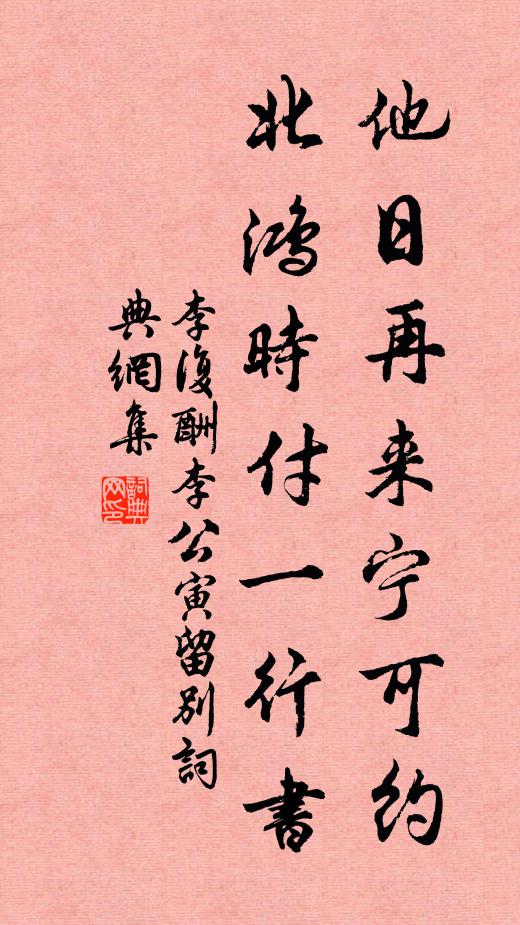 他日再来宁可约
北鸿時付一行書
李復酬李公寅留别詞
典網集
詞典网印